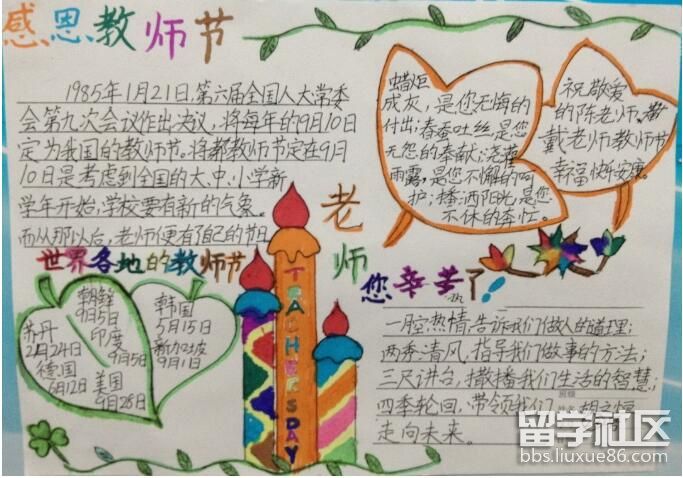 感恩教师节
1985年1月21日,第六届全国人大常委
会第九次会议作出决议,将每年的9月10日
定为我国的教师节。将教师节定在9月
10日是考虑到全国的大、中、小学新
学年开始,学校要有新的气象。
而从那以后,老师便有了自己的节日
蜡炬
成灰,是您无悔的
付出;春蚕吐丝是您
无怨的奉献;浇灌
雨露,是您不懈的呵
护;播洒阳光,是您
不休的责任。
祝敬爱
的陈老师、
戴老师教师节
幸福快乐安康。
老师
您辛苦了!
世界各地的教师节
朝鲜
9月5日
印度
9月5日
苏丹
2月24日
德国
6月12日
美国
9月28日
韩国
5月15日
新加坡
9月1日
TEACHERSDAY
一腔热情,告诉我们做人的道理;
两季清风,指导我们做事的方法;
三尺讲台,撒播我们生活的智慧;
四季轮回,带领我们
走向未来。
班级
留学社区
bbs.liuxue86.com